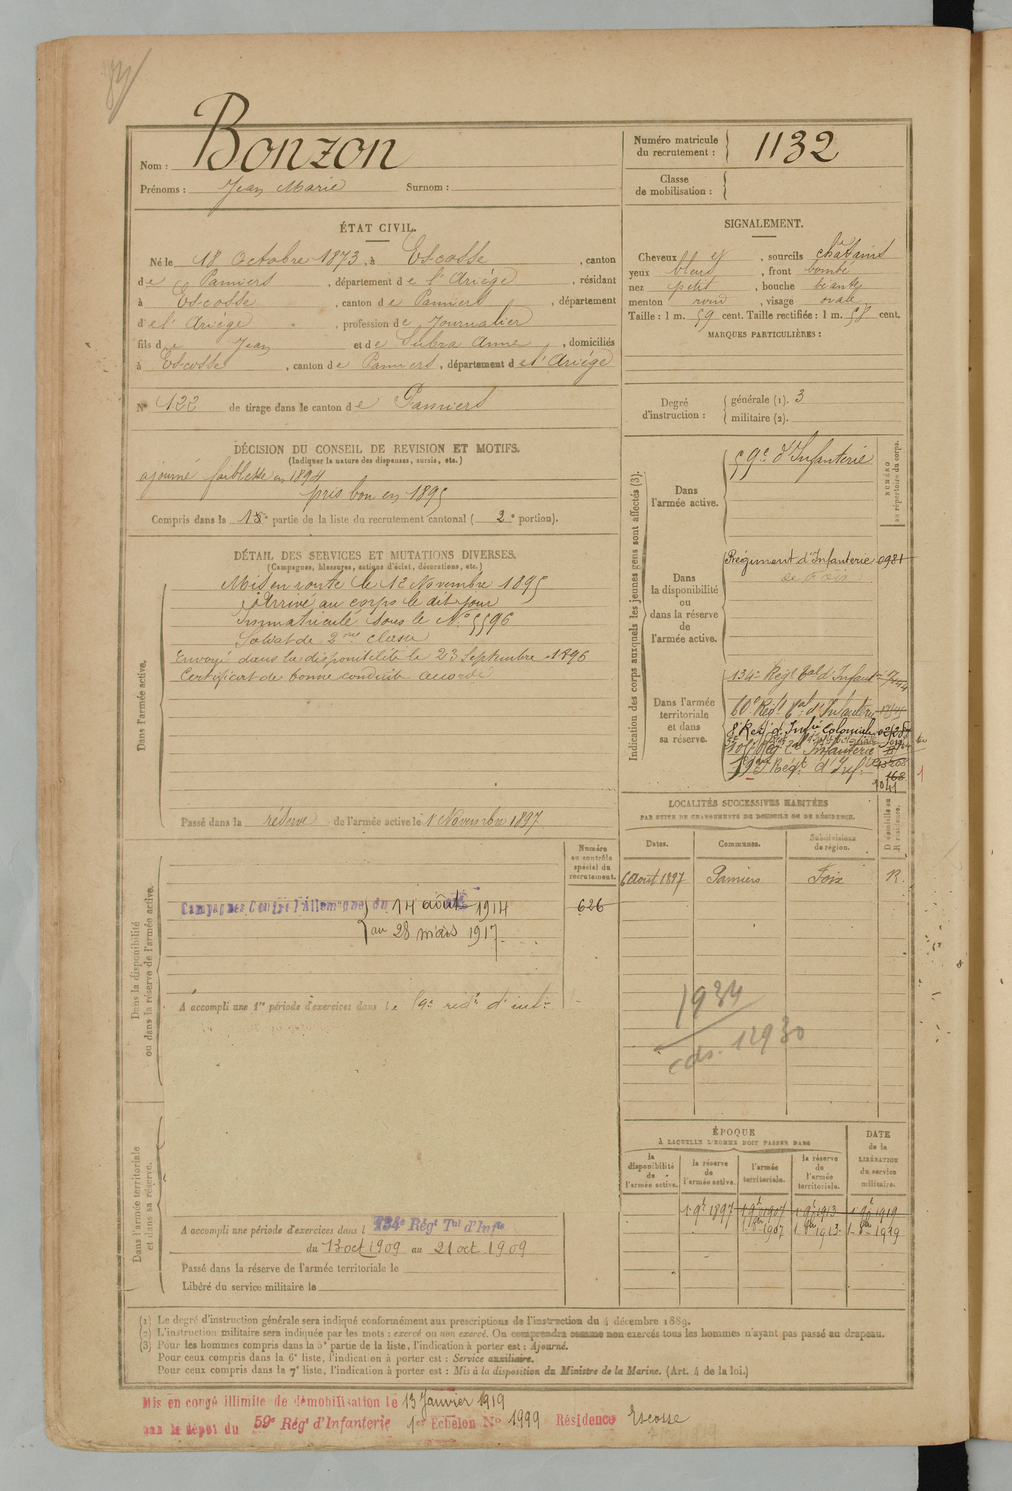 Nom : Bonzon
Prénoms : Jean Marie Surnom :
Numéro matricule du recrutement : 1132
Classe de mobilisation :
ÉTAT CIVIL.
Né le 18 Octobre 1873, à Escosse, canton
de Pamiers, département de l'Ariège, résidant
à Escosse, canton de Pamiers, département
d'el'Ariège, profession de Journalier
fils de Jean et de Subra Anne, domiciliés
à Escosse, canton de Pamiers, département del'Ariége
N° 122 de tirage dans le canton de Pamiers
SIGNALEMENT.
Cheveux et, sourcils châtains
yeux bleus, front bombé
nez petit, bouche béante
menton rond, visage ovale
Taille : 1 m. 59 cent. Taille rectifiée : 1 m. 58 cent.
MARQUES PARTICULIÈRES :
Degré d'instruction : générale (1). 3
militaire (2).
DÉCISION DU CONSEIL DE REVISION ET MOTIFS.
(Indiquer la nature des dispenses, sursis, etc.)
ajourné faiblesse en 1894
pris bon en 1895
Compris dans la partie de la liste du recrutement cantonal ( 2e portion).
DÉTAIL DES SERVICES ET MUTATIONS DIVERSES.
(Campagnes, blessures, actions d'éclat, décorations, etc.)
Dans l'armée active.
Mis en route le 12 Novembre 1895
Arrivé au corps le dit jour
Immatriculé sous le N° 5596
Soldat de 2me classe
Envoyé dans la disponibilité le 23 Septembre 1896
Certificat de bonne conduite accordé
Passé dans la réserve de l'armée active le 1 Novembre 1897
Indication des corps auxquels les jeunes gens sont affectés (3).
NUMÉRO au répertoire du corps.
Dans l'armée active.
59e d'Infanterie
Dans la disponibilité ou dans la réserve de l'armée active.
Régiment d'Infanterie 0981
de Foix
Dans l'armée territoriale et dans sa réserve.
134e Régt Tal d'Infant
60e Régt Tal d'Infanterie
8e Regt d'Infie Coloniale
Regt d'Inf.
1041
LOCALITÉS SUCCESSIVES HABITÉES
PAR SUITE DE CHANGEMENTS DE DOMICILE OU DE RÉSIDENCE.
D domicile ou R résidence.
Dates. Communes. Subdivisions de région.
6 Aout 1897 Pamiers Foix R.
Dans la disponibilité ou dans la réserve de l'armée active.
Numéro au contrôle spécial du recrutement.
626
Campagnes Contre l'Allemagne du 14 août 1914
au 28 mars 1917.
A accompli une 1re période d'exercices dans le 59e régt d'inf
1934
cds. 12930
Dans l'armée territoriale et dans sa réserve.
A accompli une période d'exercices dans l 134e Régt Tal d'Infie
du 13 oct 1909 au 21 oct 1909
Passé dans la réserve de l'armée territoriale le
Libéré du service militaire le
ÉPOQUE
À LAQUELLE L'HOMME DOIT PASSER DANS
DATE de la LIBÉRATION du service militaire.
la disponibilité de l'armée active. la réserve de l'armée active. l'armée territoriale. la réserve de l'armée territoriale.
1 9bre 1897 1 9bre 1907 1 9bre 1913 1 9bre 1919
1 8bre 1907 1 8bre 1913 1 8bre 1919
(1) Le degré d'instruction générale sera indiqué conformément aux prescriptions de l'instruction du 4 décembre 1889.
(2) L'instruction militaire sera indiquée par les mots : exercé ou non exercé. On comprendra comme non exercés tous les hommes n'ayant pas passé au drapeau.
(3) Pour les hommes compris dans la 5e partie de la liste, l'indication à porter est : Ajourné.
Pour ceux compris dans la 6e liste, l'indication à porter est : Service auxiliaire.
Pour ceux compris dans la 7e liste, l'indication à porter est : Mis à la disposition du Ministre de la Marine. (Art. 4 de la loi.)
Mis en congé illimité de démobilisation le 13 Janvier 1919
par le dépôt du 59e Régt d'Infanterie 1er Echelon N° 1999 Résidence Escosse